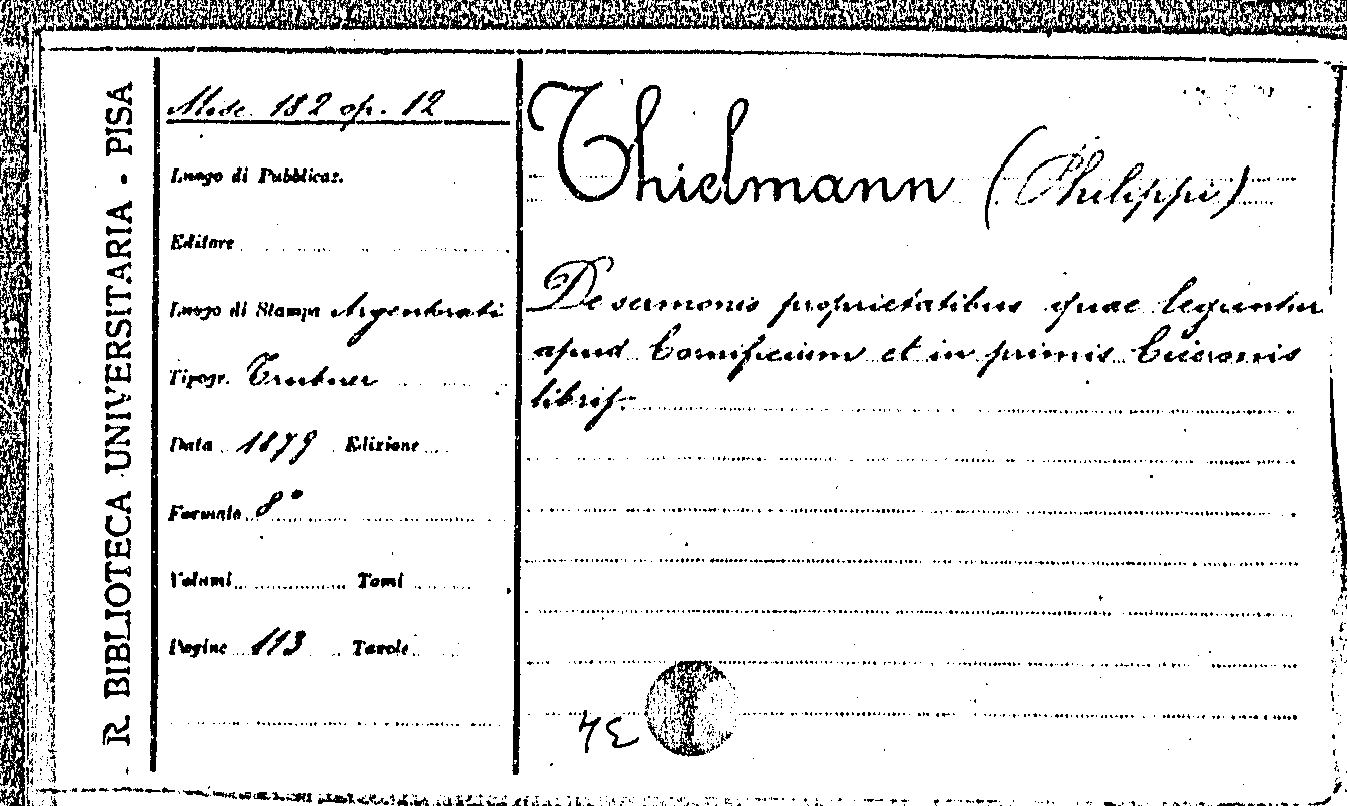 R. BIBLIOTECA UNIVERSITARIA - PISA
Misc. 182 op. 12
Luogo di Pubblicaz.
Editore
Luogo di Stampa Argentorati
Tipogr. Trubner
Data 1879 Edizione
Formato 8°
Volumi Tomi
Pagine 113 Tavole
Thielmann (Philippi)
De sermonis proprietatibus quae leguntur
apud Cornificium et in primis Ciceronis
libris.